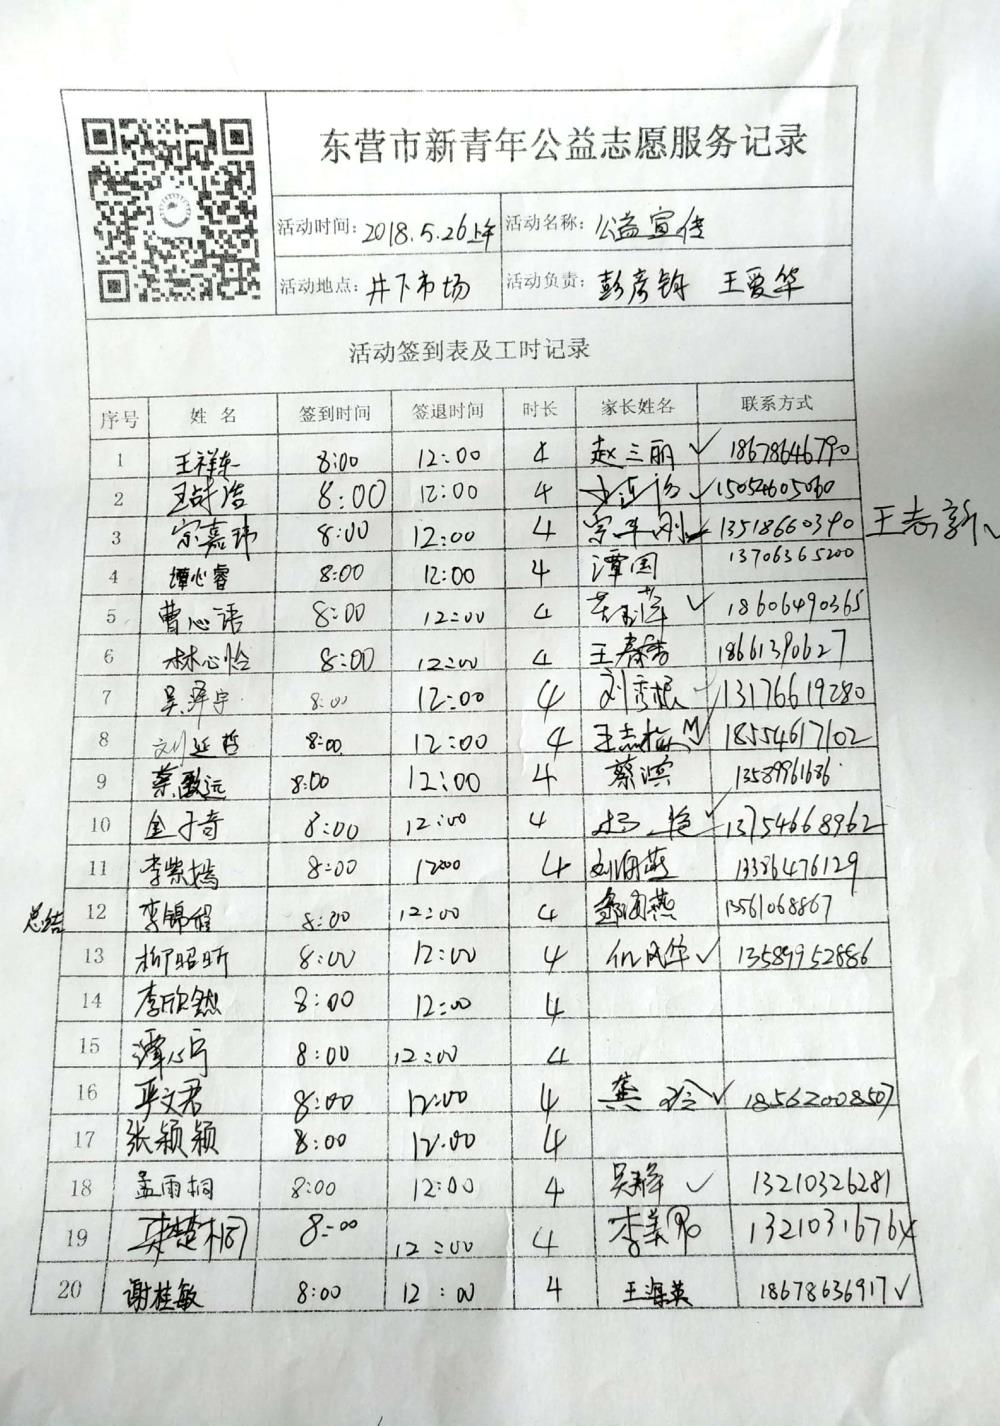 东营市新青年公益志愿服务记录
活动时间: 2018.5.26上午 活动名称: 公益宣传
活动地点: 井下市场 活动负责: 彭彦 王爱华
活动签到表及工时记录
序号 姓名 签到时间 签退时间 时长 家长姓名 联系方式
1 王祥东 8:00 12:00 4 赵三丽 ✓ 18678646790
2 8:00 12:00 4 ✓ 15054605060
3 宗嘉玮 8:00 12:00 4 宗军刚 ✓ 13518660390 王志新 ✓
4 谭心睿 8:00 12:00 4 谭国 13706365200
5 曹心语 8:00 12:00 4 ✓ 18606490365
6 林心怡 8:00 12:00 4 王春香 18661390627
7 吴泽宇 8:00 12:00 4 刘秀根 ✓ 13176619280
8 刘延哲 8:00 12:00 4 王志梅 ✓ 18554617102
9 蔡致远 8:00 12:00 4 蔡滨 13589961686
10 金子奇 8:00 12:00 4 杨艳 ✓ 13754668962
11 李紫嫣 8:00 12:00 4 刘海燕 13386476129
总结 12 李锦程 8:00 12:00 4 邹海燕 13561068867
13 柳昭昕 8:00 12:00 4 风华 ✓ 13589952886
14 李欣然 8:00 12:00 4
15 谭心宁 8:00 12:00 4
16 严文君 8:00 12:00 4 龚玲 ✓ 18562008507
17 张颖颖 8:00 12:00 4
18 孟雨桐 8:00 12:00 4 吴峰 ✓ 13210326281
19 宋楚桐 8:00 12:00 4 李美 13210316764
20 谢桂敏 8:00 12:00 4 王海英 18678636917 ✓